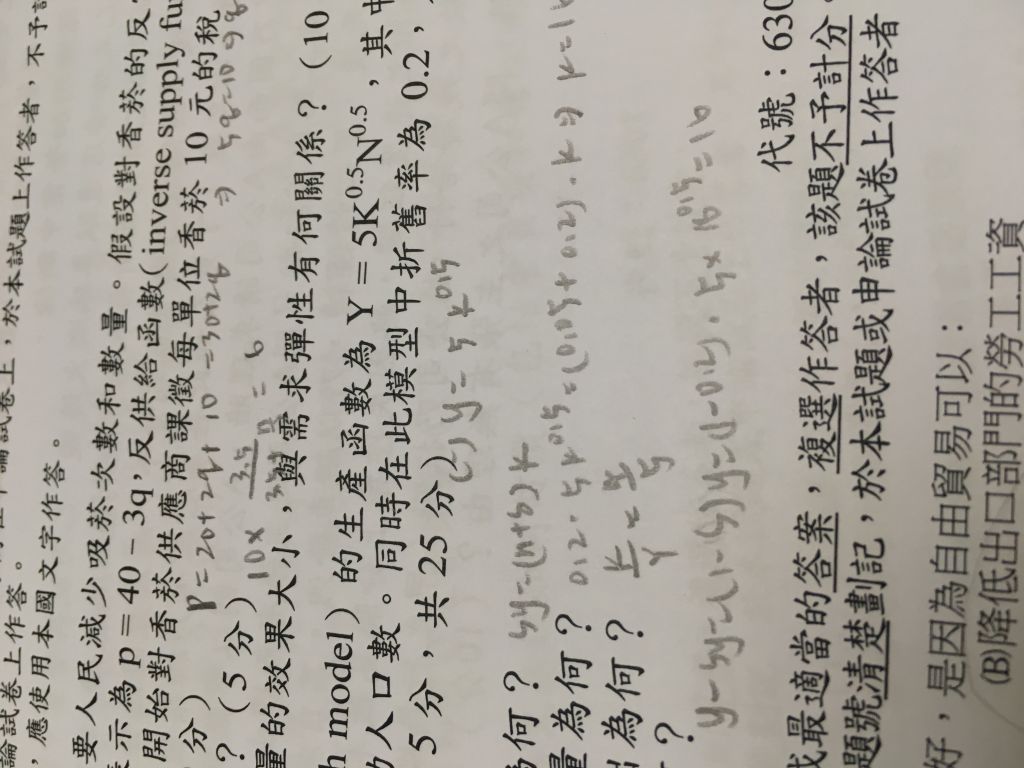 論試卷上作答。 論試卷上,於本試題上作答者,不予計
,應使用本國文字作答。
要人民減少吸菸次數和數量。假設對香菸的反
示為 p = 40 – 3q,反供給函數(inverse supply fu
開始對香菸供應商課徵每單位香菸 10 元的稅
P=20+2q+10=30+2q ⇒ 5q=10
分)
?(5 分) 10×
量的效果大小,與需求彈性有何關係?(10
h model)的生產函數為 Y = 5K0.5N0.5,其中
人口數。同時在此模型中折舊率為 0.2,
5 分,共 25 分) y=5k^0.5
何? sy=(n+δ)k
量為何? 0.2·5k^0.5=(0.05+0.2)·k ⇒ k=16
為何?
?
y-sy=(1-s)y=(1-0.2)·5×16^0.5=16
代號:630
找最適當的答案,複選作答者,該題不予計分。
題號清楚劃記,於本試題或申論試卷上作答者
好,是因為自由貿易可以:
(B)降低出口部門的勞工工資